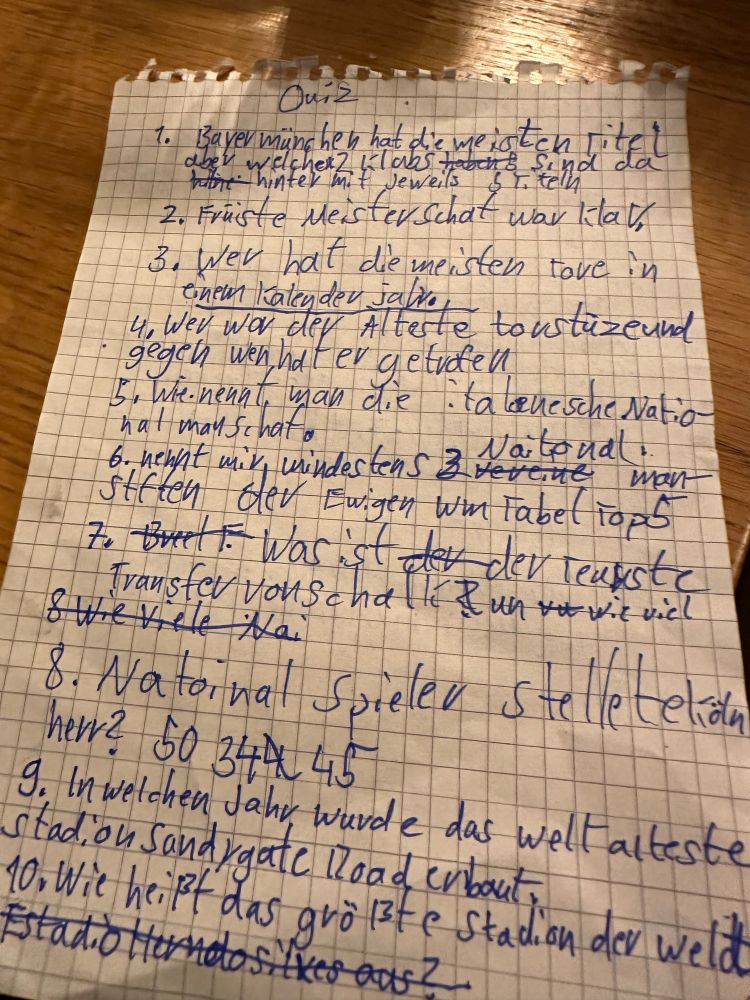 Quiz
1. Bayer münchen hat die meisten Titel
aber welcher? klabs haben 5 sind da
hinter mit jeweils 5 Titeln
2. Früiste Meisterschat war klar,
3. Wer hat die meisten Tore in
einem Kalender jahr.
4. Wer war der Älteste torstüze und
gegen wen hat er getrofen
5. Wie nennt man die italienesche Natio-
nal manschaf.
6. nennt mir mindestens 3 vereine Naitonal. man-
stften der Ewigen wm Tabel Top5
7. Was ist der der Teuste
Transfer von Schalk un wie viel
8 Wie viele Nai
8. Natoinal Spieler stellete Köln
herr? 50 344 45
9. In welchen Jahr wurde das welt alteste
stadion Sandygate Road erbaut.
10. Wie heißt das größte Stadion der weld
Estadio Herndo silves aus?